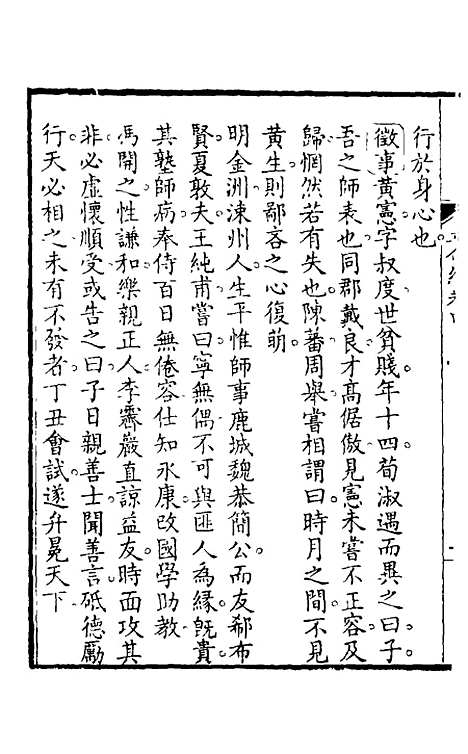 行於身心也
徵事黃憲字叔度世貧賤年十四荀淑遇而異之曰子
吾之師表也同郡戴良才高倨傲見憲未嘗不正容及
歸惘然若有失也陳蕃周舉嘗相謂曰時月之間不見
黃生則鄙吝之心復萌
明金洲涑州人生平惟師事鹿城魏恭簡公而友郗布
賢夏敦夫王純甫嘗曰寧無偶不可與匪人為緣旣貴
其塾師病奉侍百日無倦容仕知永康改國學助教
馮開之性謙和樂親正人李霽巖直諒益友時面攻其
非必虛懷順受或告之曰子日親善士聞善言砥德勵
行天必相之未有不發者丁丑會試遂升冕天下